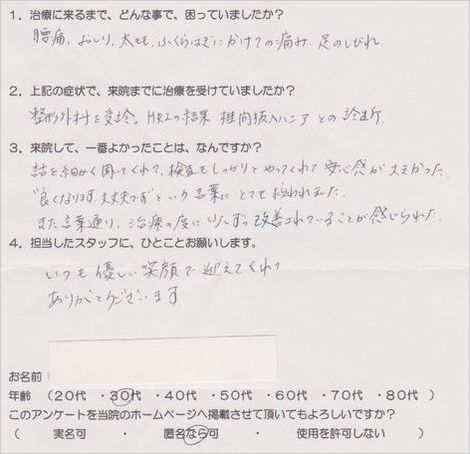 1. 治療に来るまで、どんな事で、困っていましたか?
腰痛、おしり、太もも、ふくらはぎにかけての痛み 足のしびれ
2. 上記の症状で、来院までに治療を受けていましたか?
整形外科を受診。MRIの結果 椎間板ヘルニアとの診断。
3. 来院して、一番よかったことは、なんですか?
話を細かく聞いてくれて、検査もしっかりとやってくれて安心感が大きかった。
"良くなります。大丈夫です"という言葉にとても救われました。
また言葉通り、治療の度に少しずつ改善されていることが感じられた。
4. 担当したスタッフに、ひとことお願いします。
いつも優しい笑顔で迎えてくれて
ありがとうございます
お名前
年齢 (20代 ・30代 ・40代 ・50代 ・60代 ・70代 ・80代 )
このアンケートを当院のホームページへ掲載させて頂いてもよろしいですか?
( 実名可 ・ 匿名なら可 ・ 使用を許可しない )